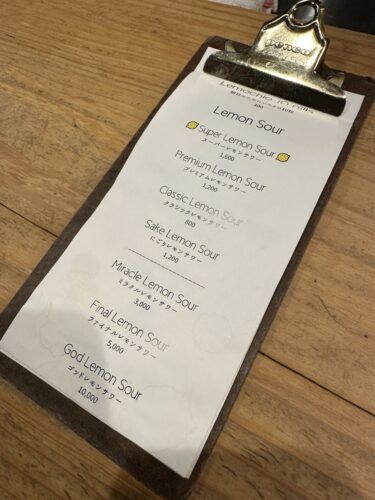 penco
Lemochie 10 hills
800
Lemon Sour
Super Lemon Sour
スーパーレモンサワー
1,600
Premium Lemon Sour
プレミアムレモンサワー
1,200
Classic Lemon Sour
クラシックレモンサワー
800
Sake Lemon Sour
にごりレモンサワー
1,200
Miracle Lemon Sour
ミラクルレモンサワー
3,000
Final Lemon Sour
ファイナルレモンサワー
5,000
God Lemon Sour
ゴッドレモンサワー
10,000